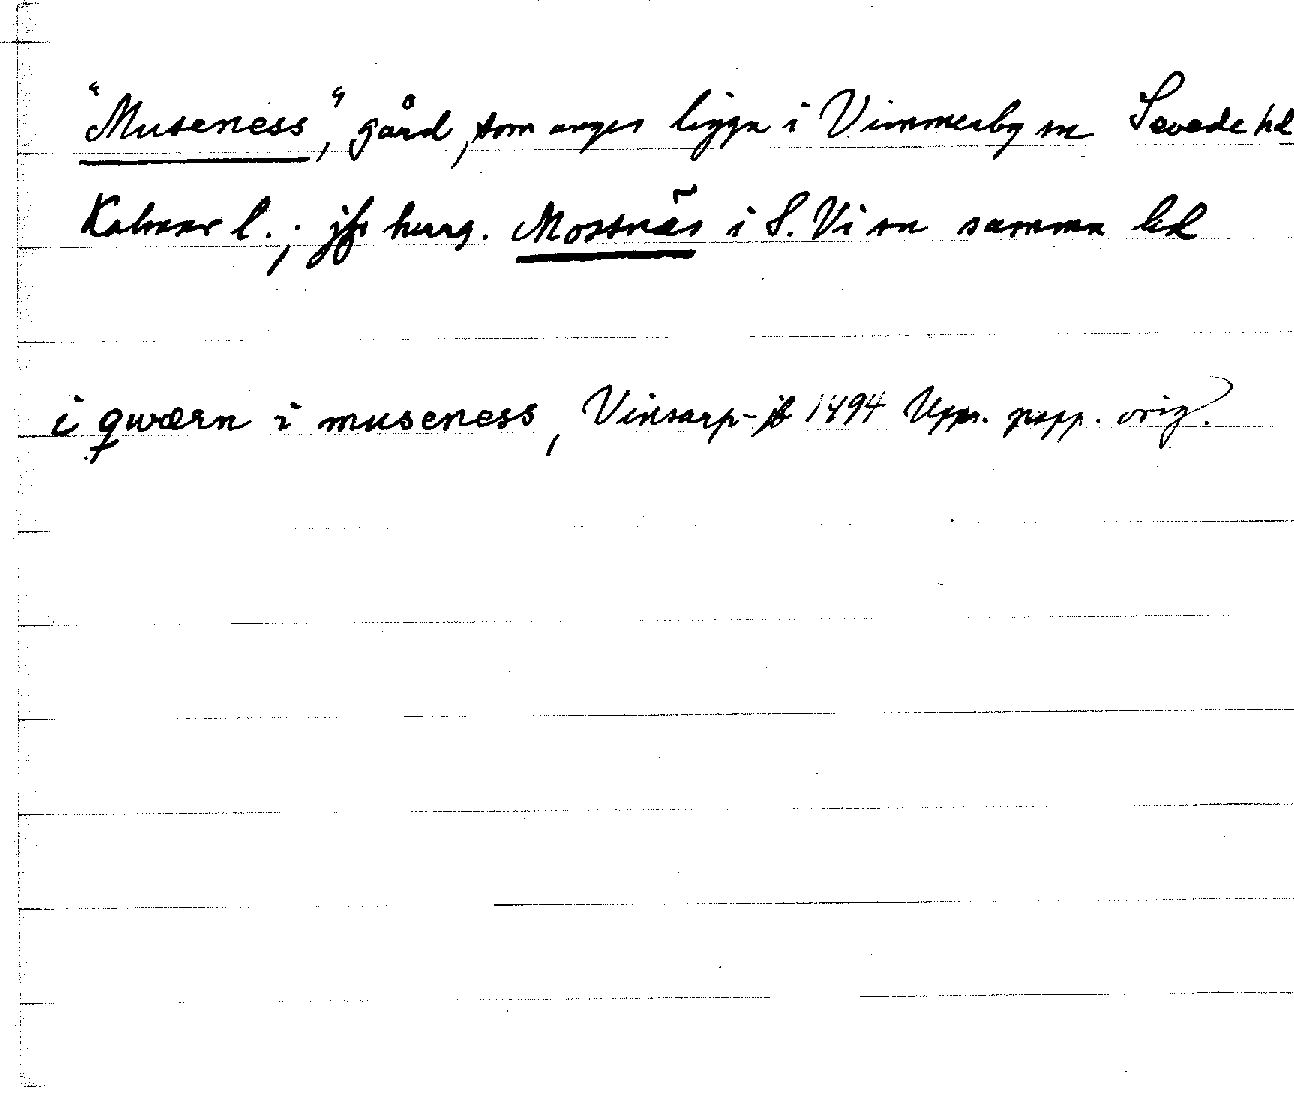 "Museness", gård, som anges ligga i Vimmerby sn Sevede hd
Kalmar l.; jfr herrg. Mossnäs i S. Vi sn samma hd
i qwærn i museness, Vinsarp-jb 1494 Upps. papp. orig.